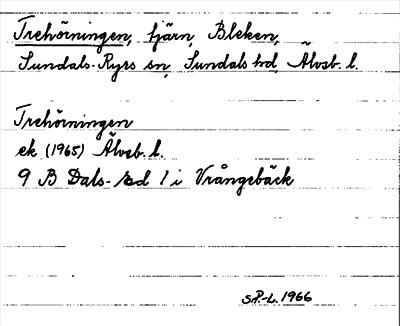 Trehörningen, tjärn, Bleken,
Sundals-Ryrs sn, Sundals hd, Älvsb. l.
Trehörningen
ek (1965) Älvsb. l.
9 B Dals- Ed 1 i Vrångsbäck
S.P.-L. 1966